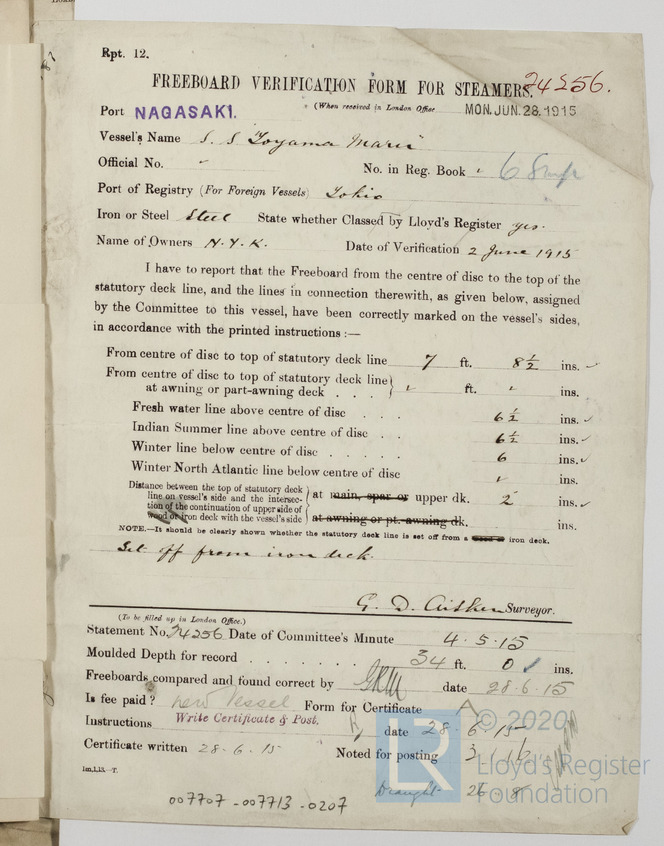 Rpt. 12.
FREEBOARD VERIFICATION FORM FOR STEAMERS. 24256.
Port NAGASAKI. (When received in London Office MON. JUN. 28. 1915
Vessel's Name S.S Toyama Maru
Official No. No. in Reg. Book 68
Port of Registry (For Foreign Vessels) Tokio
Iron or Steel Steel State whether Classed by Lloyd's Register yes.
Name of Owners N.Y.K. Date of Verification 2 June 1915
I have to report that the Freeboard from the centre of disc to the top of the
statutory deck line, and the lines in connection therewith, as given below, assigned
by the Committee to this vessel, have been correctly marked on the vessel's sides,
in accordance with the printed instructions :—
From centre of disc to top of statutory deck line 7 ft. 8 1/2 ins. ✓
From centre of disc to top of statutory deck line
at awning or part-awning deck . . . " ft. " ins.
Fresh water line above centre of disc . . 6 1/2 ins. ✓
Indian Summer line above centre of disc . . 6 1/2 ins. ✓
Winter line below centre of disc . . . . . 6 ins. ✓
Winter North Atlantic line below centre of disc " ins.
Distance between the top of statutory deck
line on vessel's side and the intersec-
tion of the continuation of upper side of
wood or iron deck with the vessel's side
at main, spar or upper dk. 2 ins. ✓
at awning or pt. awning dk. ins.
NOTE.—It should be clearly shown whether the statutory deck line is set off from a wood or iron deck.
Set off from iron deck.
G. D. Aitken Surveyor.
(To be filled up in London Office.)
Statement No. 24256 Date of Committee's Minute 4.5.15
Moulded Depth for record . . . . . . . 34 ft. 0 ins.
Freeboards compared and found correct by date 28.6.15
Is fee paid? new Vessel Form for Certificate A
Instructions Write Certificate & Post. date 28 6 15
Certificate written 28.6.15 Noted for posting 3/16
1m,1,13.—T.
Draught 26 8
007707-007713-0207
© 2020
LR
Lloyd's Register
Foundation